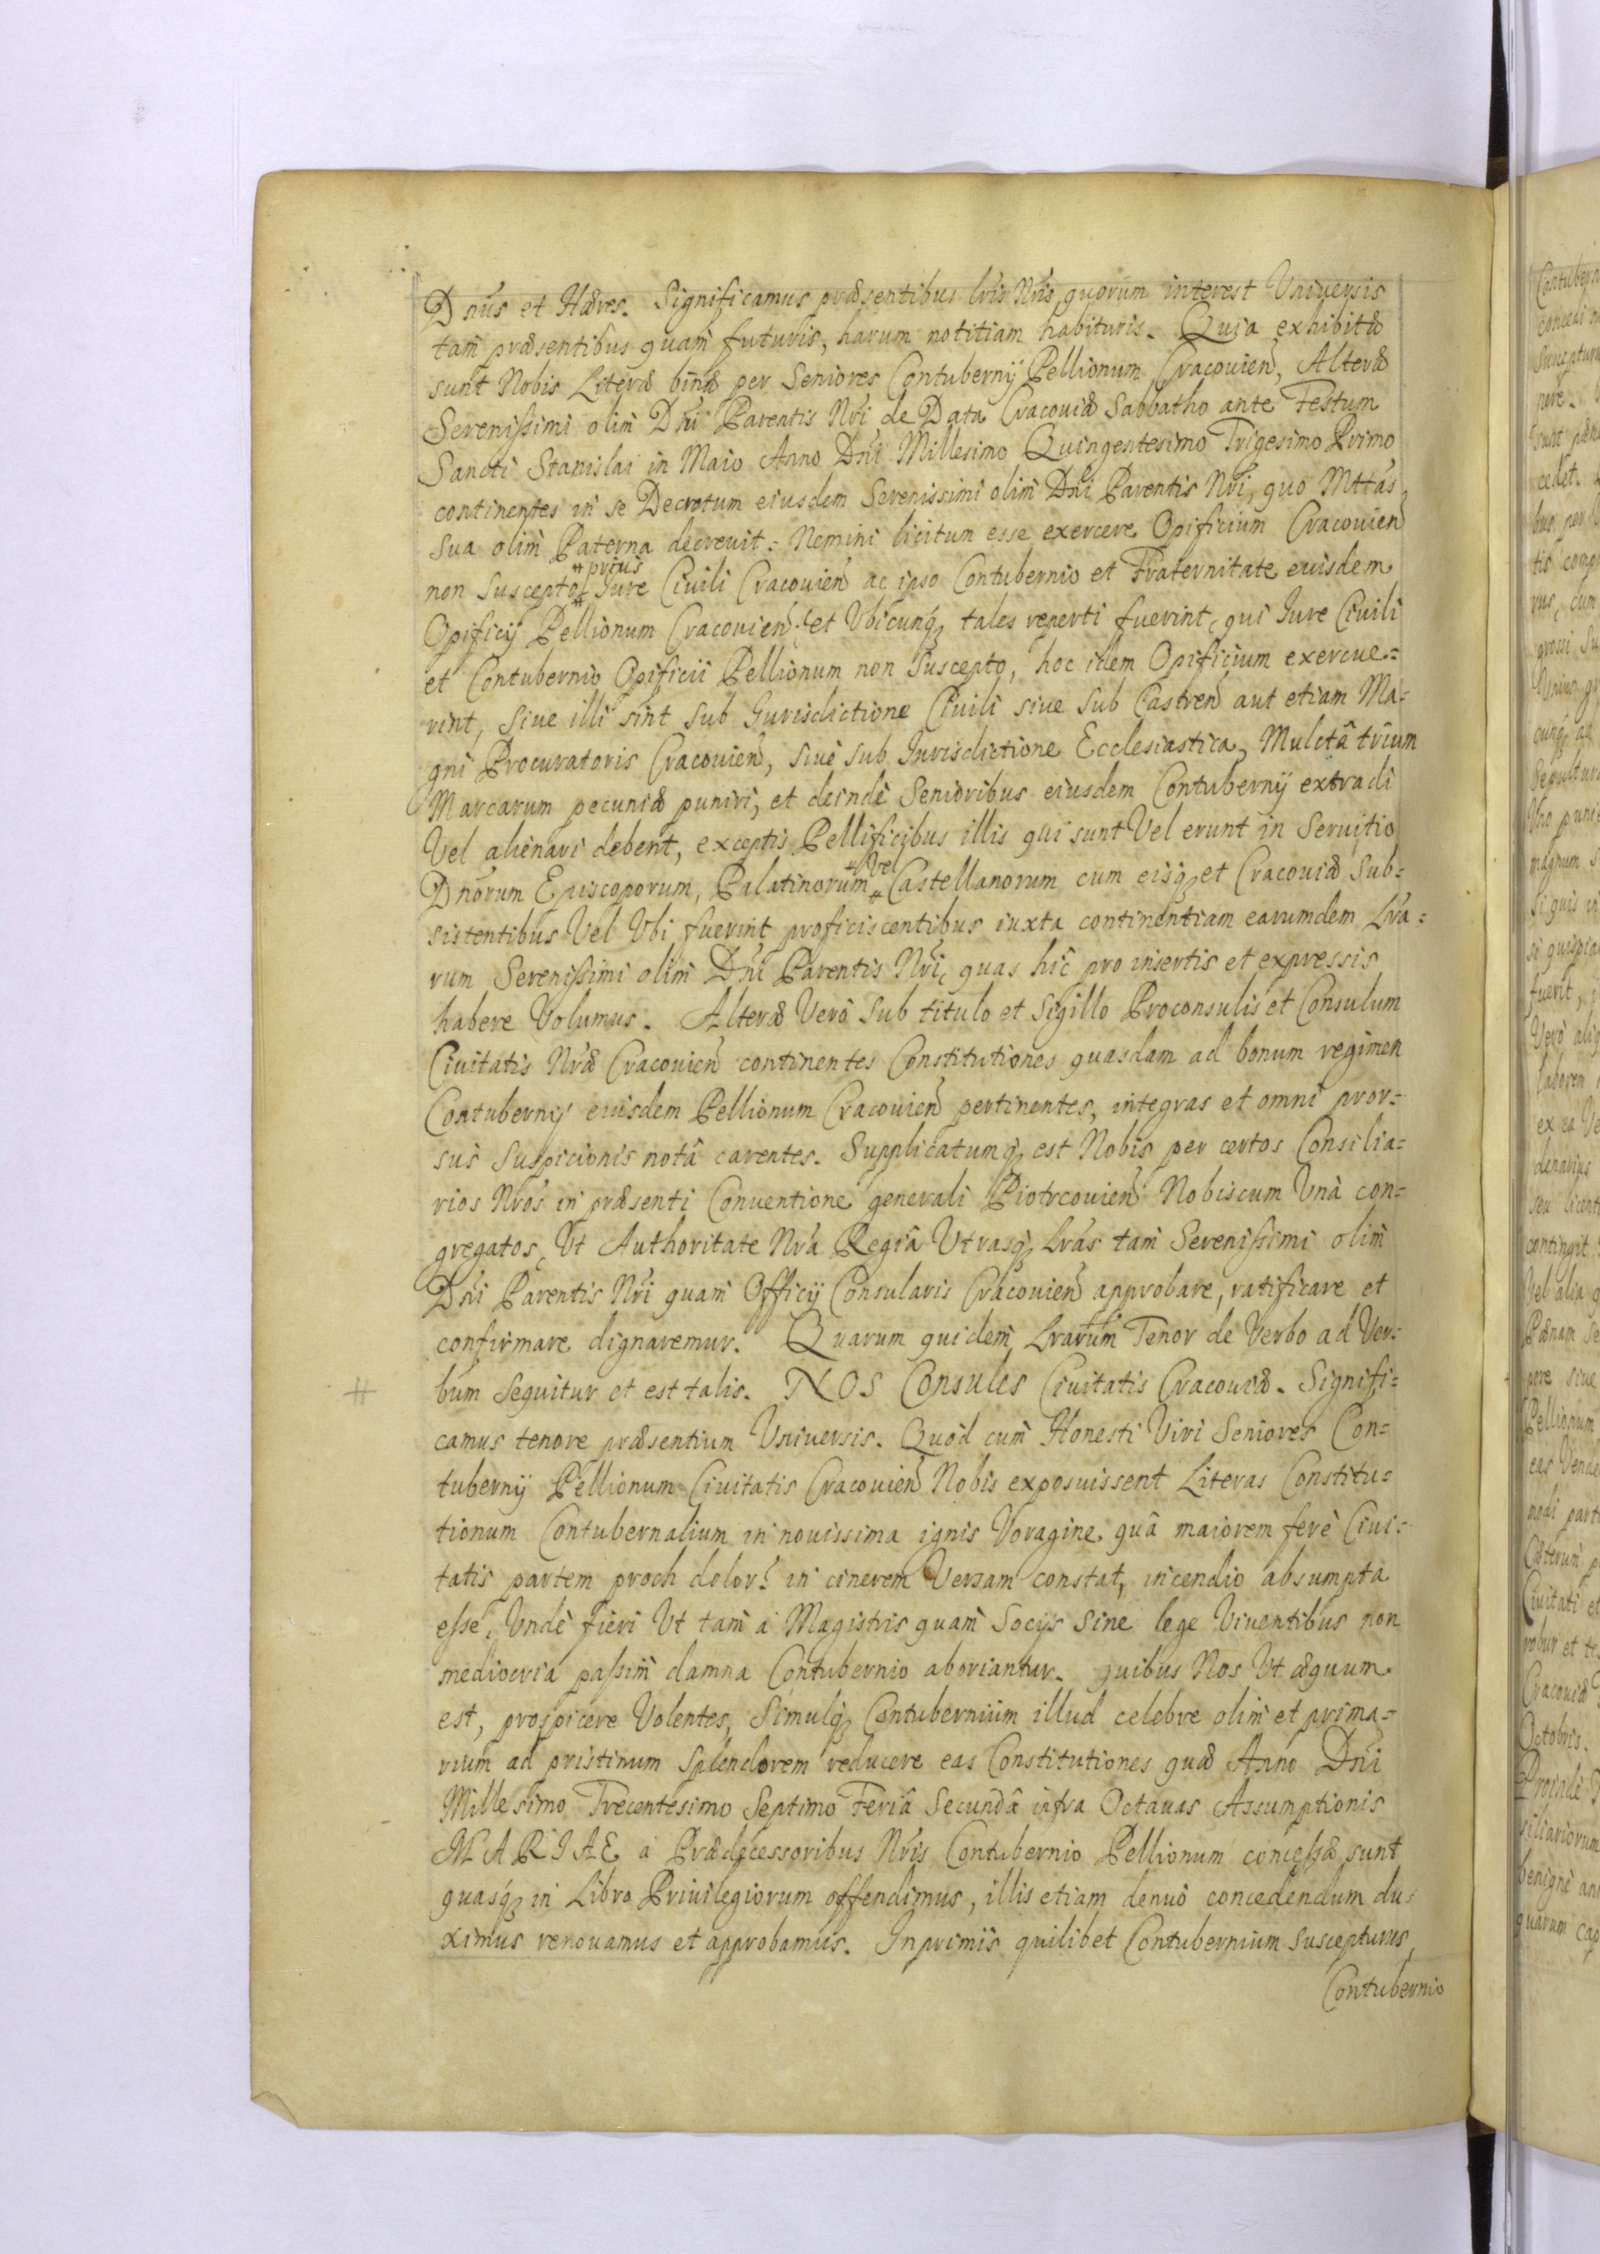 Dnus et Hæres. Significamus præsentibus lris Nris, quorum interest Universis
tam præsentibus quam futuris, harum notitiam habituris. Quia exhibitæ
sunt Nobis Literæ binæ per Seniores Contubernij Pellionum Cracovien, Alteræ
Serenissimi olim Dni Parentis Nri de Data Cracoviæ Sabbatho ante Festum
Sancti Stanislai in Maio Anno Dni Millesimo Quingentesimo Trigesimo Primo
continentes in se Decretum eiusdem Serenissimi olim Dni Parentis Nri, quo Mttas
sua olim Paterna decrevit: Nemini licitum esse exercere Opificium Cracovien
non Suscepto # prius # Jure Civili Cracovien ac ipso Contubernio et Fraternitate euisdem
Opificij Pellionum Cracovien. et Ubicunq tales reperti fuerint, qui Iure Civili
et Contubernio Opificii Pellionum non Suscepto, hoc idem Opificium exercue=
rint, Sive illi sint Sub Jurisdictione Civili sive Sub Castren aut etiam Ma=
gni Procuratoris Cracovien, sive sub Jurisdictione Ecclesiastica, Mulctâ trium
Marcarum pecuniæ puniri, et deinde Senioribus eiusdem Contubernij extradi
Vel alienari debent, exceptis Pellificibus illis qui sunt Vel erunt in Servitio
Dnorum Episcoporum, Palatinorum # Vel # Castellanorum cum eisq et Cracoviæ Sub=
sistentibus Vel Ubi fuerint proficiscentibus iuxta continentiam earumdem Lra=
rum Serenissimi olim Dni Parentis Nri, quas hic pro insertis et expressis
habere Volumus. Alteræ Vero Sub titulo et Sigillo Proconsulis et Consulum
Civitatis Nræ Cracovien continentes Constitutiones quasdam ad bonum regimen
Contubernij euisdem Pellionum Cracovien pertinentes, integras et omni pror=
sus Suspicionis notâ carentes. Supplicatumq est Nobis per certos Consilia=
rios Nros in præsenti Conventione generali Piotrcovien Nobiscum Unà con=
gregatos, Ut Authoritate Nra Regiâ Utrasq Lras tam Serenissimi olim
Dni Parentis Nri quam Officij Consularis Cracovien approbare, ratificare et
confirmare dignaremur. Quarum quidem Lrarum Tenor de Verbo ad Ver=
bum Sequitur et est talis. NOS Consules Civitatis Cracoviæ. Signifi=
camus tenore præsentium Universis. Quòd cum Honesti Viri Seniores Con=
tubernij Pellionum Civitatis Cracovien Nobis exposuissent Literas Constitu=
tionum Contubernalium in novissima ignis Voragine, quâ maiorem ferè Civi=
tatis partem proch dolor! in cinerem Versam constat, incendio absumpta
esse, Undè fieri Ut tam à Magistris quam Socijs Sine lege Viventibus non
mediocria passim damna Contubernio aboriantur. quibus Nos Ut æquum
est, prospicere Volentes, Simulq Contubernium illud celebre olim et prima=
rium ad pristinum Splendorem reducere eas Constitutiones quæ Anno Dni
Millesimo Trecentesimo Septimo Feriâ Secundâ infra Octavas Assumptionis
MARIAE à Prædecessoribus Nris Contubernio Pellionum concessæ sunt
quasq in Libro Privilegiorum offendimus, illis etiam denuò concedendum du=
ximus renovamus et approbamus. Inprimis quilibet Contubernium suscepturus,
Contubernio